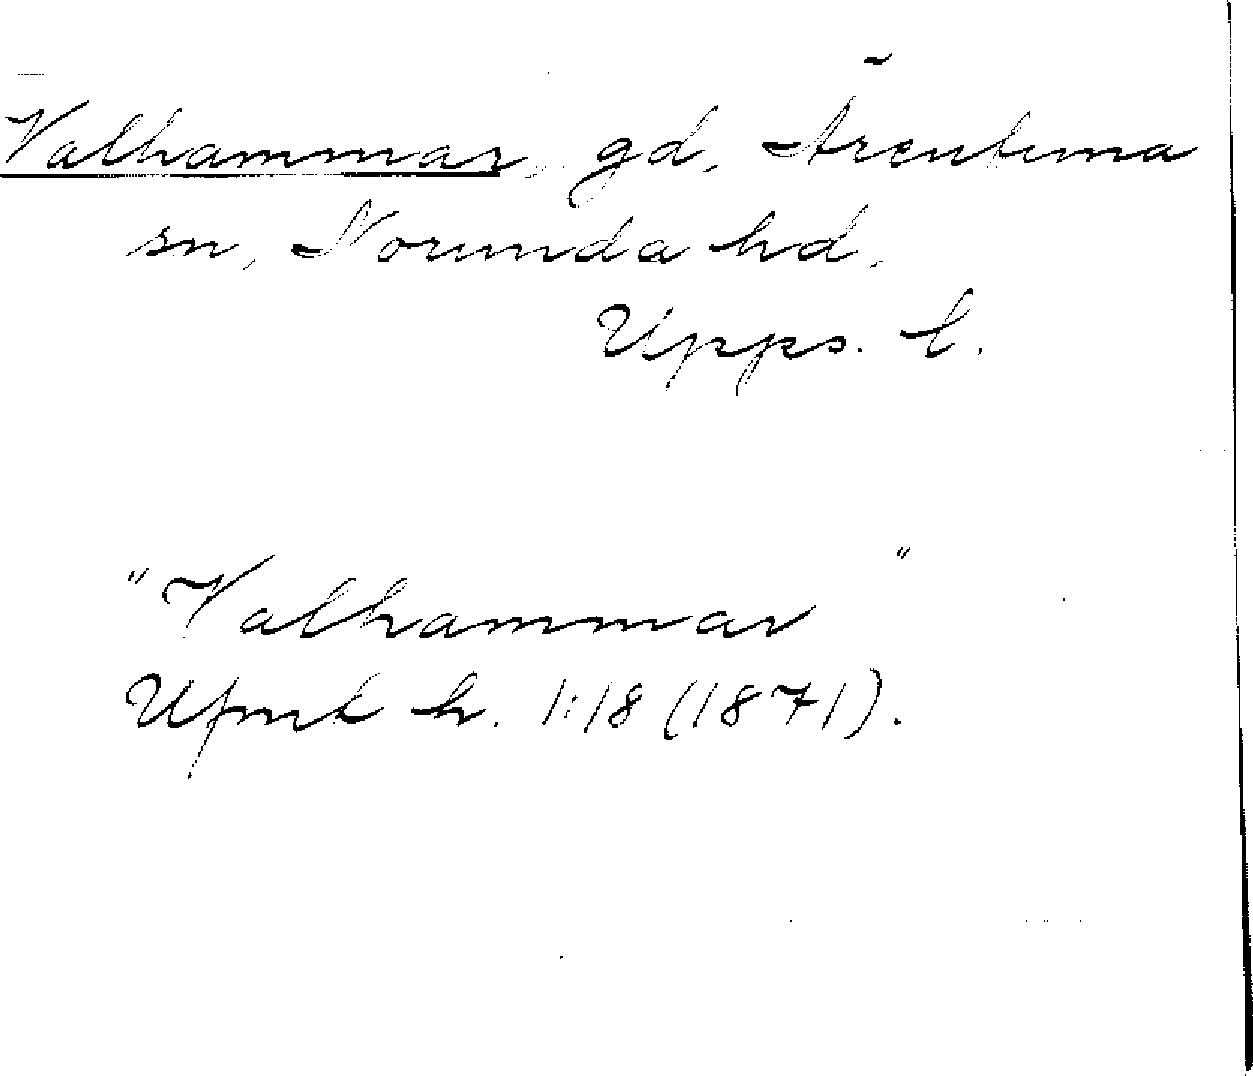 Valhammar, gd, Ärentuna
sn, Norunda hd.
Upps. l.
"Valhammar"
Upmk h. 1:18 (1871).